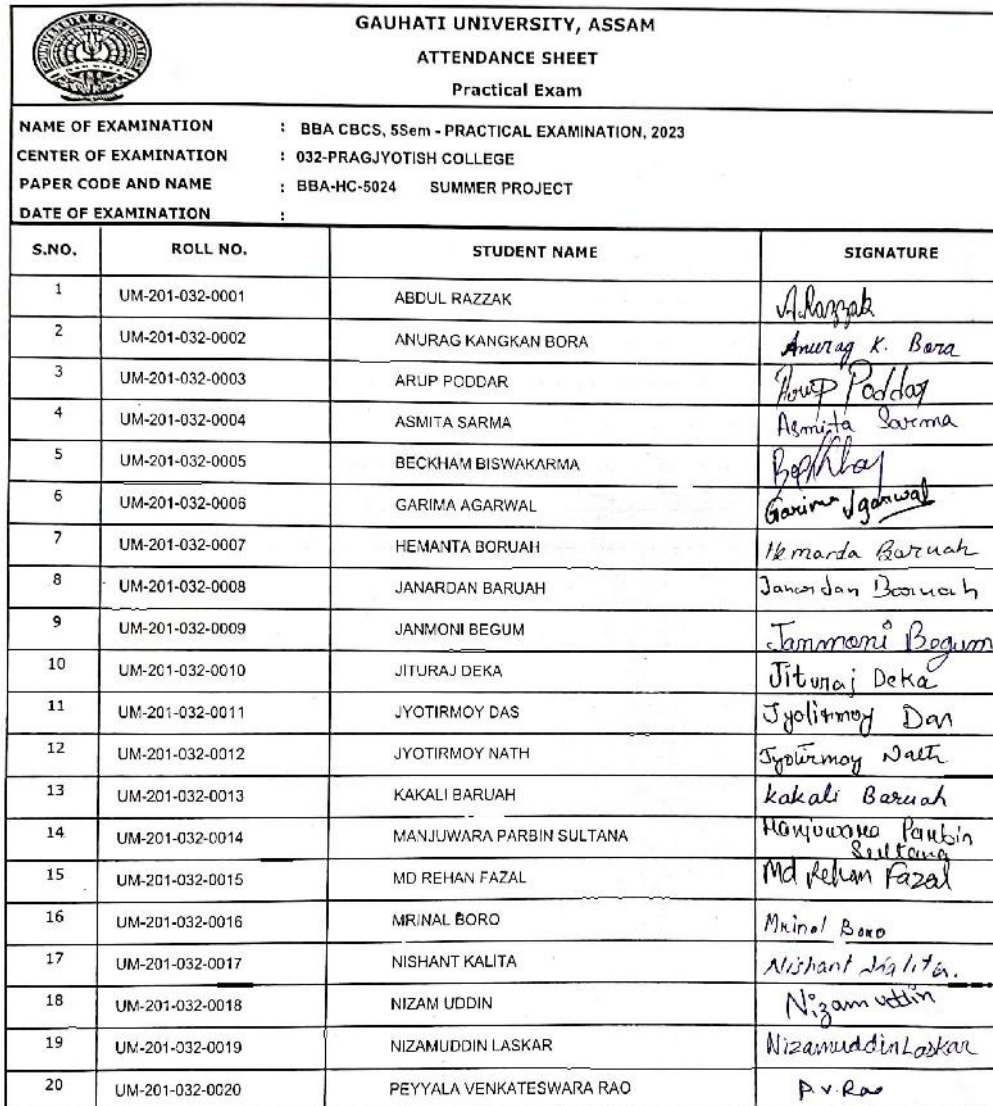 GAUHATI UNIVERSITY, ASSAM
ATTENDANCE SHEET
Practical Exam
NAME OF EXAMINATION : BBA CBCS, 5Sem - PRACTICAL EXAMINATION, 2023
CENTER OF EXAMINATION : 032-PRAGJYOTISH COLLEGE
PAPER CODE AND NAME : BBA-HC-5024 SUMMER PROJECT
DATE OF EXAMINATION :
S.NO. ROLL NO. STUDENT NAME SIGNATURE
1 UM-201-032-0001 ABDUL RAZZAK A.Razzak
2 UM-201-032-0002 ANURAG KANGKAN BORA Anurag K. Bora
3 UM-201-032-0003 ARUP PODDAR Arup Poddar
4 UM-201-032-0004 ASMITA SARMA Asmita Sarma
5 UM-201-032-0005 BECKHAM BISWAKARMA
6 UM-201-032-0006 GARIMA AGARWAL Garima Agarwal
7 UM-201-032-0007 HEMANTA BORUAH Hemanta Boruah
8 UM-201-032-0008 JANARDAN BARUAH Janardan Baruah
9 UM-201-032-0009 JANMONI BEGUM Janmoni Begum
10 UM-201-032-0010 JITURAJ DEKA Jituraj Deka
11 UM-201-032-0011 JYOTIRMOY DAS Jyotirmoy Das
12 UM-201-032-0012 JYOTIRMOY NATH Jyotirmoy Nath
13 UM-201-032-0013 KAKALI BARUAH Kakali Baruah
14 UM-201-032-0014 MANJUWARA PARBIN SULTANA Manjuwara Parbin
Sultana
15 UM-201-032-0015 MD REHAN FAZAL Md Rehan Fazal
16 UM-201-032-0016 MRINAL BORO Mrinal Boro
17 UM-201-032-0017 NISHANT KALITA Nishant Kalita.
18 UM-201-032-0018 NIZAM UDDIN Nizam uddin
19 UM-201-032-0019 NIZAMUDDIN LASKAR Nizamuddin Laskar
20 UM-201-032-0020 PEYYALA VENKATESWARA RAO P.V.Rao